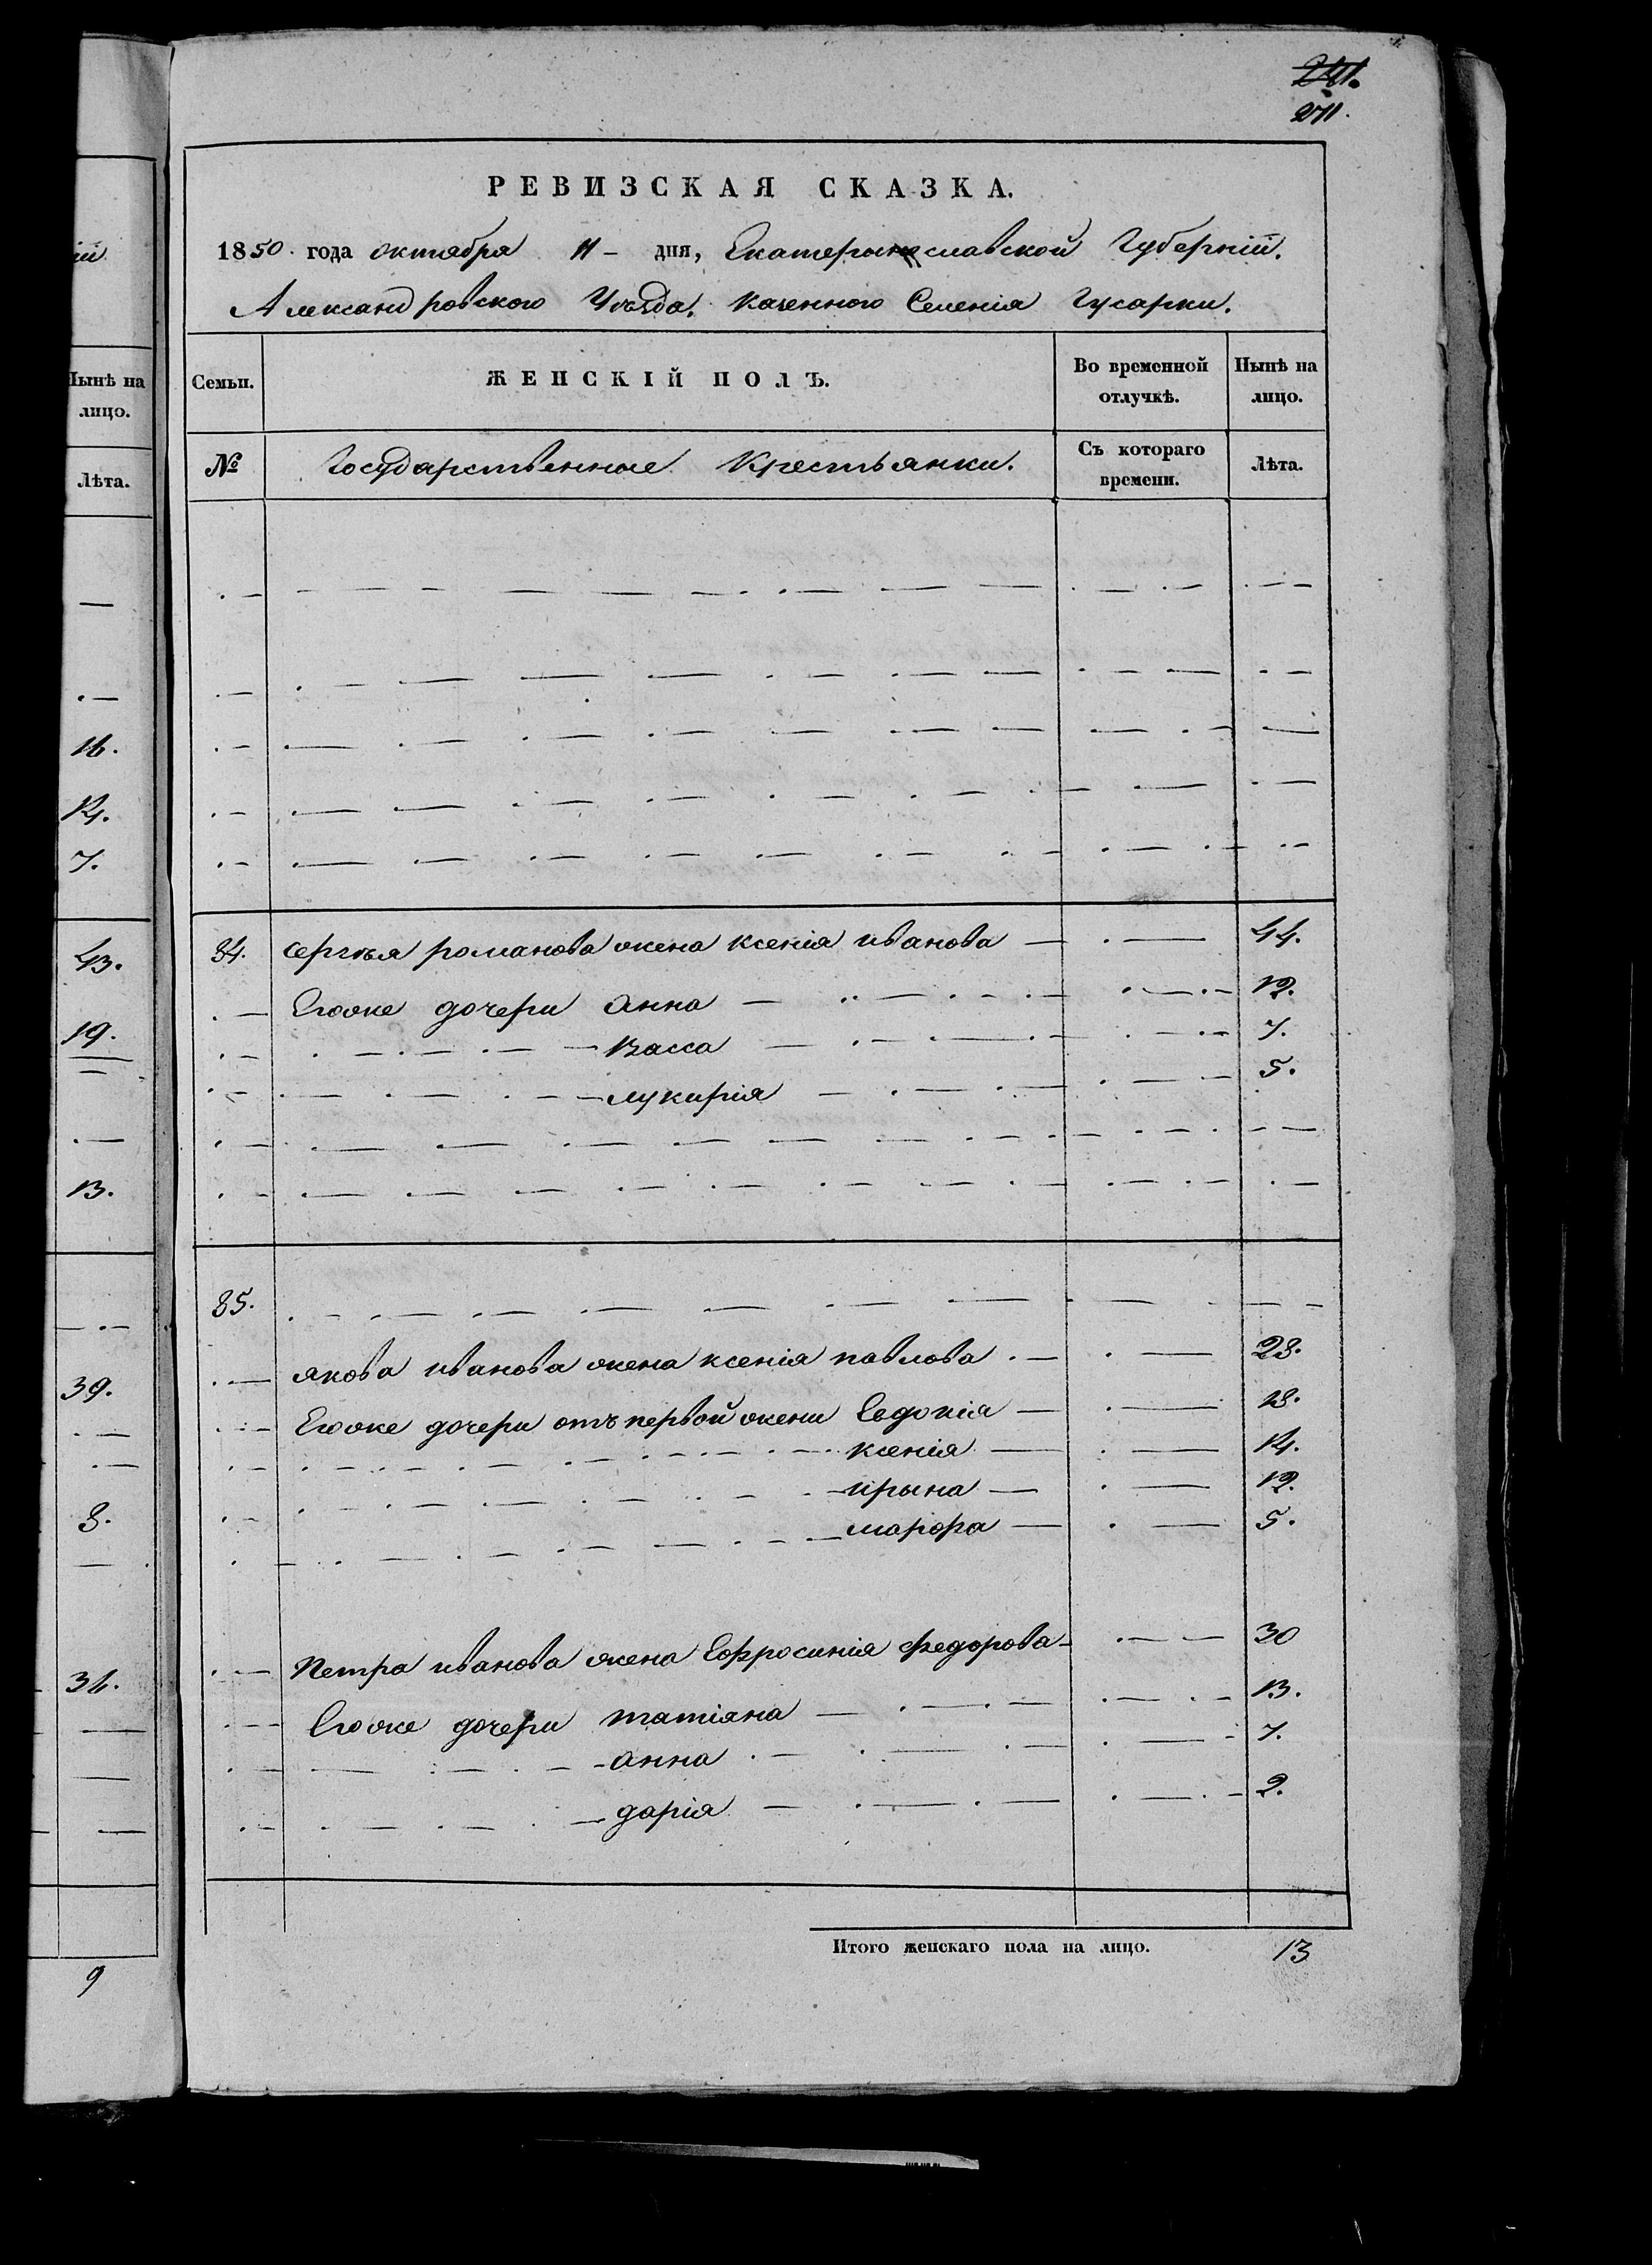 241.
271.
РЕВИЗСКАЯ СКАЗКА.
1850. года октября 11 - дня, Екатеринославской Губерніи.
Александровского Уѣзда. Казенного Селенія Гусарки.
Нынѣ на
лицо.
Лѣта.
16.
14.
7.
43.
19.
13.
39.
8.
36.
9
Семьи. ЖЕНСКІЙ ПОЛЪ. Во временной отлучкѣ. Нынѣ на лицо.
№ Государственные Крестьянки. Съ котораго времени. Лѣта.
84. Сергѣя романова жена ксенія иванова — 44.
Егоже дочери Анна — 12.
Васса — 7.
лукирія — 5.
85.
якова иванова жена ксенія павлова — 28.
Егоже дочери отъ первой жени Евдокія — 18.
ксенія — 14.
ирына — 12.
марфа — 5.
Петра иванова жена Ефросинія федорова — 30
Егоже дочери татіяна — 13.
анна — 7.
дарія — 2.
Итого женскаго пола на лицо. 13